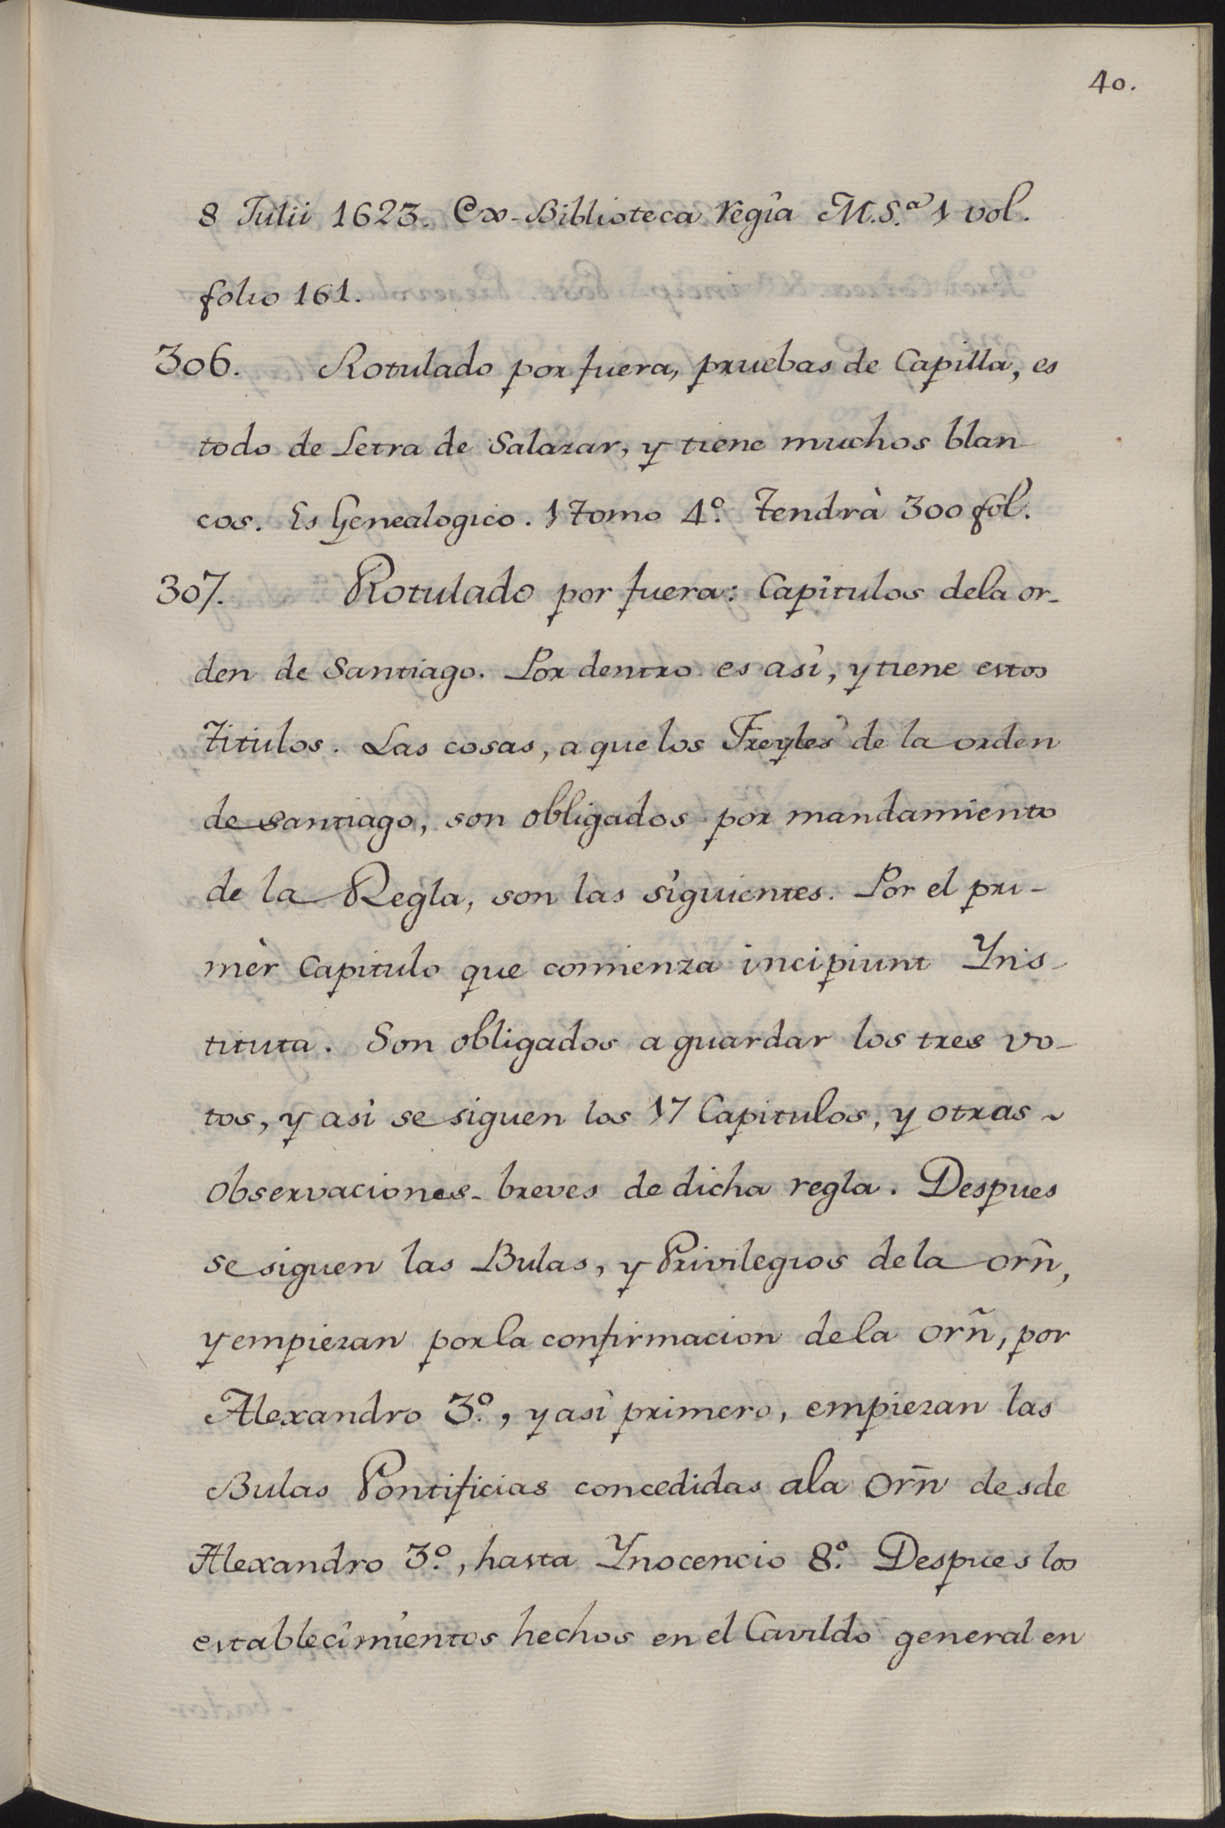 40.
8 Julii 1623. Ex-Biblioteca regîa M.S.ª 1 vol.
folio 161.
306. Rotulado por fuera, pruebas de Capilla, es
todo de Letra de Salazar, y tiene muchos blan-
cos. Es Genealogico. 1 tomo 4º. tendrà 300 fol.
307. Rotulado por fuera: Capitulos dela or-
den de Santiago. Por dentro es asì, y tiene estos
titulos. Las cosas, a que los Freyles de la orden
de Santiago, son obligados por mandamiento
de la Regla, son las siguientes. Por el pri-
mèr Capitulo que comienza incipiunt Yns-
tituta. Son obligados a guardar los tres vo-
tos, y asì se siguen los 17 Capitulos, y otras ~
observaciones breves de dicha regla. Despues
se siguen las Bulas, y Privilegios de la orñ,
y empiezan por la confirmacion de la orñ, por
Alexandro 3º., y asì primero, empiezan las
Bulas Pontificias concedidas ala Orñ desde
Alexandro 3º., hasta Ynocencio 8º. Despues los
establecimientos hechos en el Cavildo general en